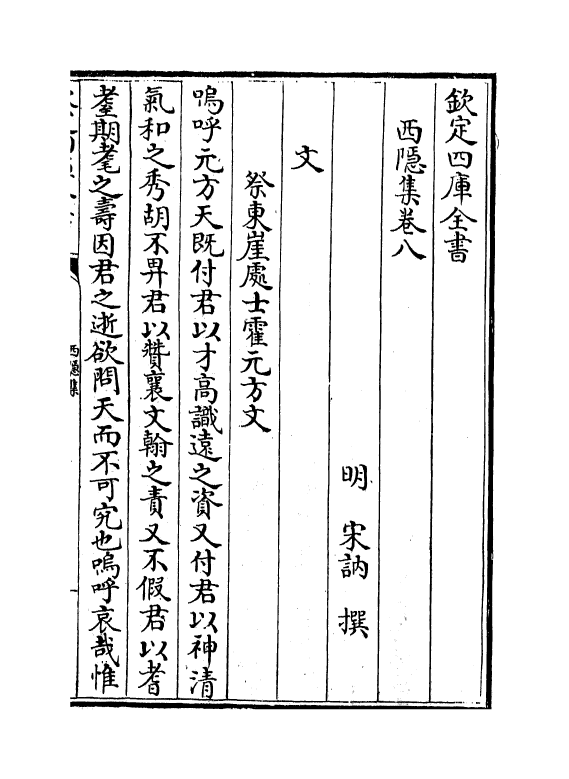 欽定四庫全書
西隱集卷八
明 宋訥 撰
文
祭東崖處士霍元方文
嗚呼元方天既付君以才高識遠之資又付君以神清
氣和之秀胡不畀君以贊襄文翰之責又不假君以耆
耋期耄之壽因君之逝欲問天而不可究也嗚呼哀哉惟
西隱集